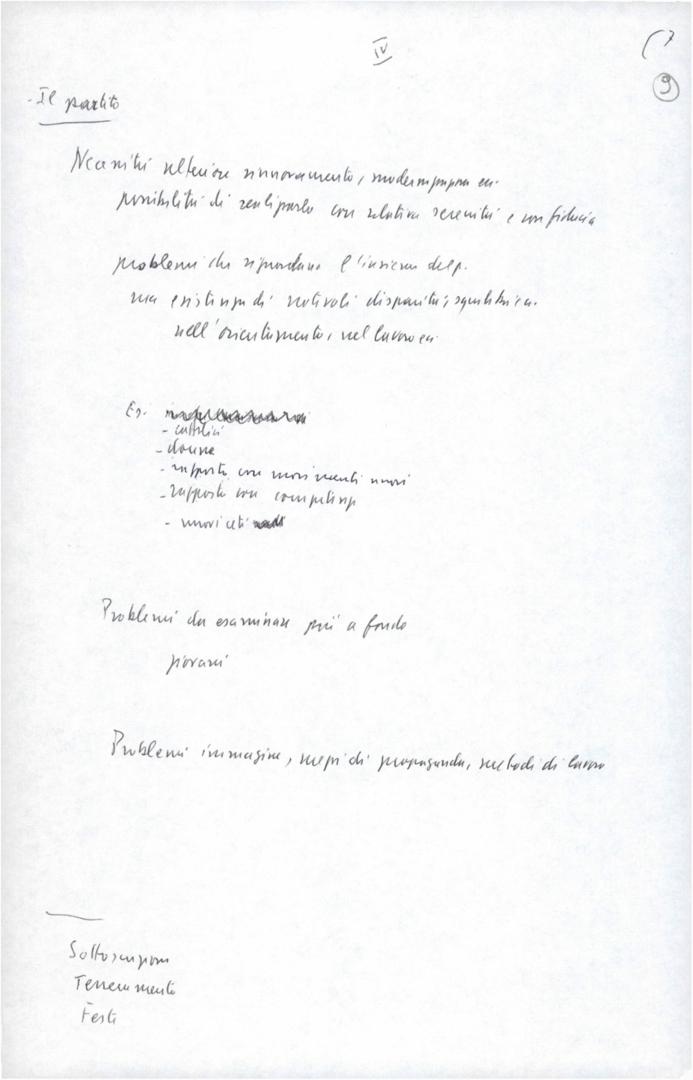 IV
7
9
- Il partito
Necessità ulteriore rinnovamento, modernizzazione ecc.
possibilità di realizzarlo con relativa serenità e con fiducia
problemi che riguardano l'insieme del p.
ma esistenza di notevoli disparità, squilibri ecc.
nell'orientamento, nel lavoro ecc.
Es.
- cattolici
- donne
- rapporto con movimenti nuovi
- rapporto con competenze
- nuovi ceti
Problemi da esaminare più a fondo
giovani
Problemi immagine, mezzi di propaganda, metodi di lavoro
Sottoscrizione
Tesseramento
Feste